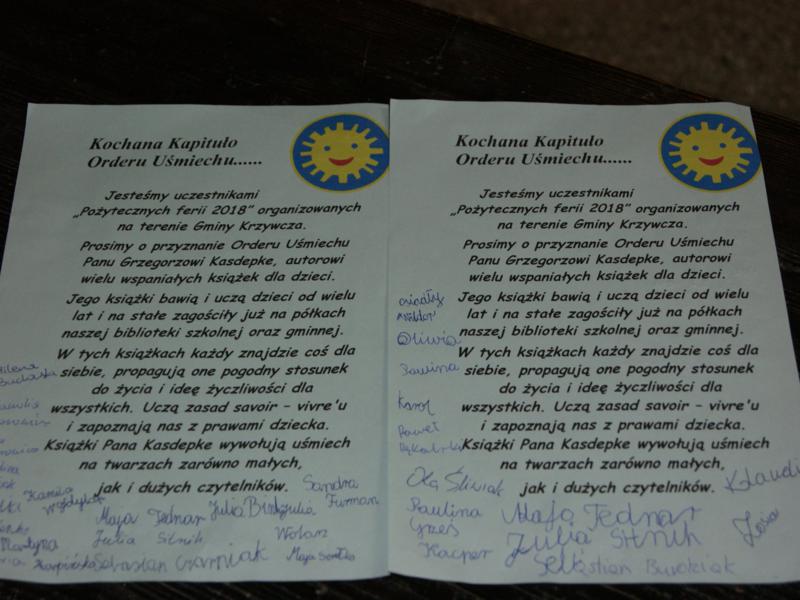 Kochana Kapituło
Orderu Uśmiechu......
Jesteśmy uczestnikami
„Pożytecznych ferii 2018” organizowanych
na terenie Gminy Krzywcza.
Prosimy o przyznanie Orderu Uśmiechu
Panu Grzegorzowi Kasdepke, autorowi
wielu wspaniałych książek dla dzieci.
Jego książki bawią i uczą dzieci od wielu
lat i na stałe zagościły już na półkach
naszej biblioteki szkolnej oraz gminnej.
W tych książkach każdy znajdzie coś dla
siebie, propagują one pogodny stosunek
do życia i ideę życzliwości dla
wszystkich. Uczą zasad savoir - vivre'u
i zapoznają nas z prawami dziecka.
Książki Pana Kasdepke wywołują uśmiech
na twarzach zarówno małych,
jak i dużych czytelników.
Milena
Sandra
Kamila
Furman
Maja Jednar
Julia
Julia Sitnik
Wolan
Martyna
Sebastian Czarniak
Maja
Kochana Kapituło
Orderu Uśmiechu......
Jesteśmy uczestnikami
„Pożytecznych ferii 2018” organizowanych
na terenie Gminy Krzywcza.
Prosimy o przyznanie Orderu Uśmiechu
Panu Grzegorzowi Kasdepke, autorowi
wielu wspaniałych książek dla dzieci.
Jego książki bawią i uczą dzieci od wielu
lat i na stałe zagościły już na półkach
naszej biblioteki szkolnej oraz gminnej.
W tych książkach każdy znajdzie coś dla
siebie, propagują one pogodny stosunek
do życia i ideę życzliwości dla
wszystkich. Uczą zasad savoir - vivre'u
i zapoznają nas z prawami dziecka.
Książki Pana Kasdepke wywołują uśmiech
na twarzach zarówno małych,
jak i dużych czytelników.
Oliwia
Karol
Paweł
Ola Śliwiak
Klaudi
Paulina
Maja Jednar
Grześ
Julia Sitnik
Zosia
Kacper
Sebastian